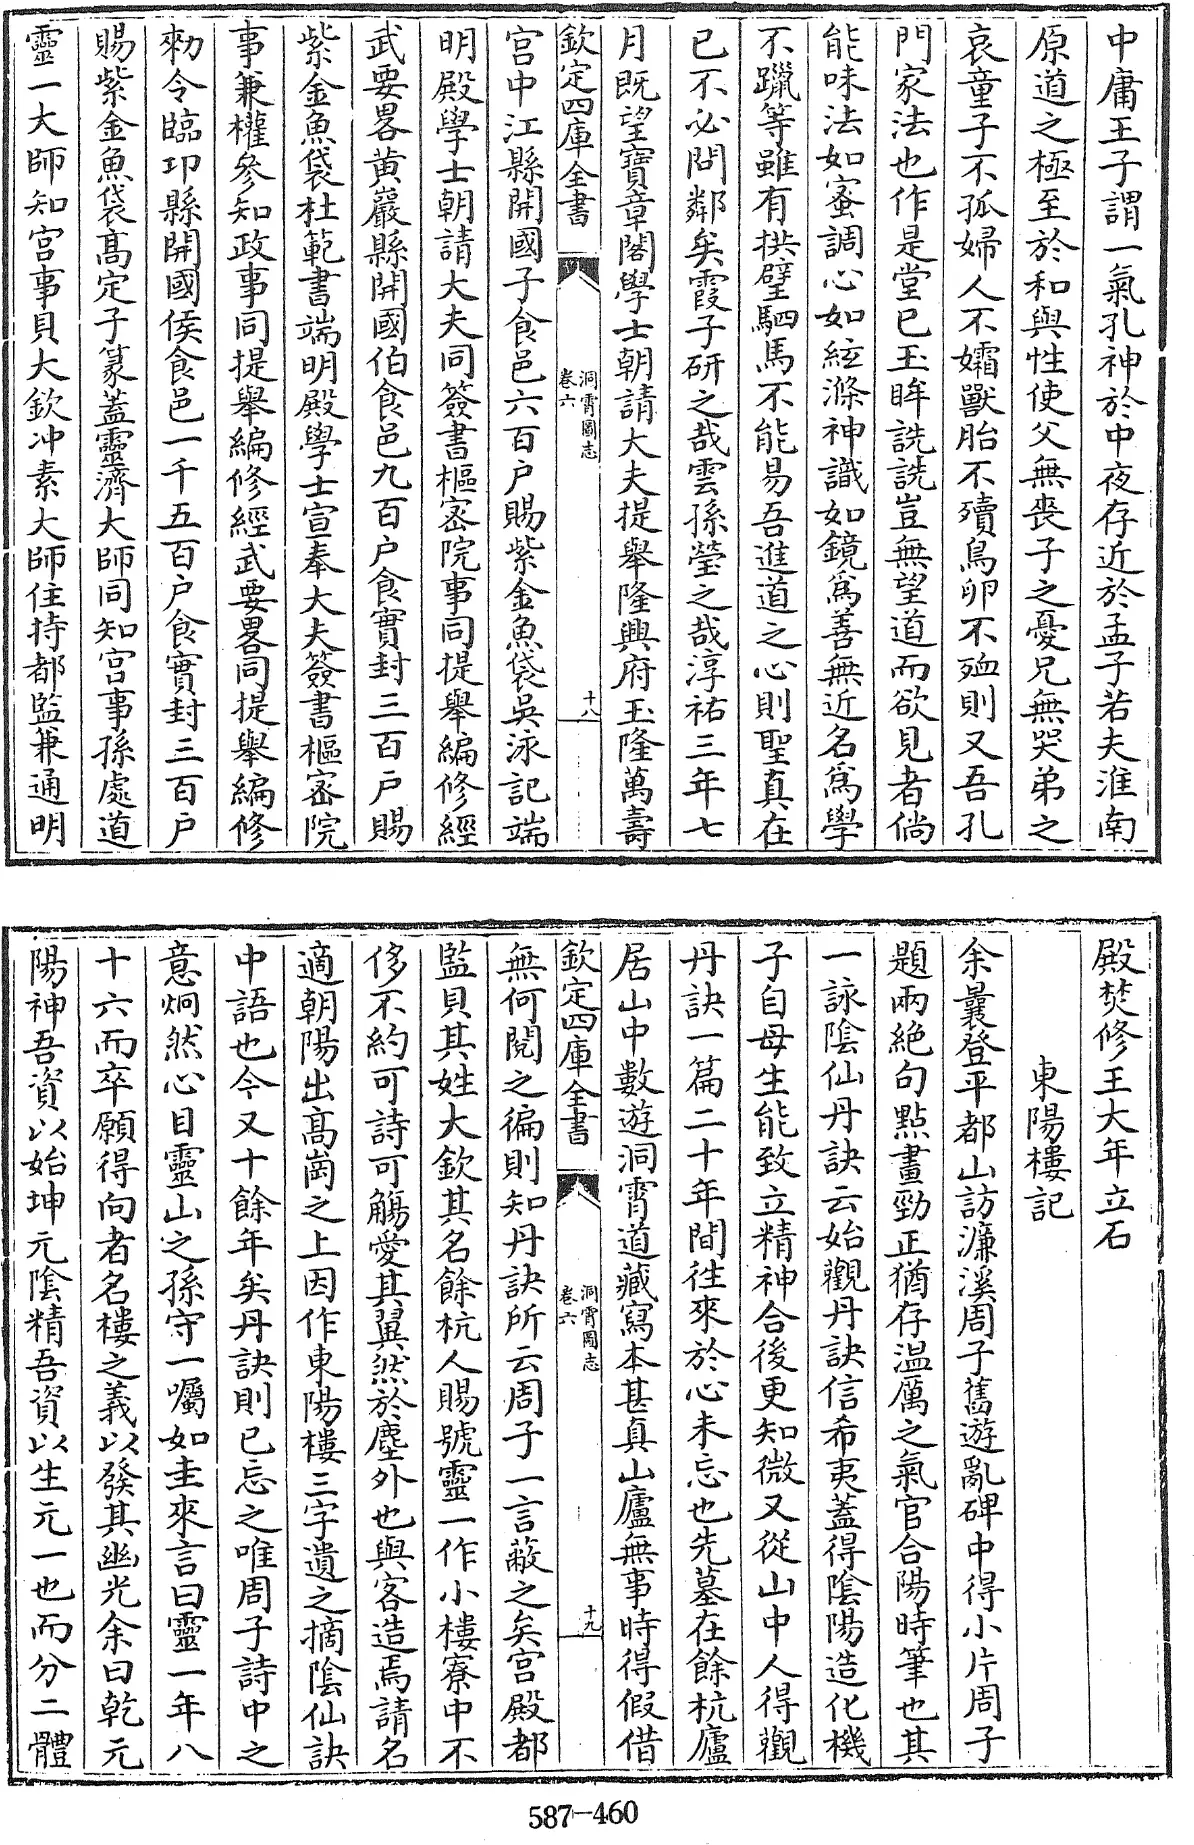 中庸王子謂一氣孔神於中夜存近於孟子若夫淮南
原道之極至於和與性使父無喪子之憂兄無哭弟之
哀童子不孤婦人不孀獸胎不殰鳥卵不殈則又吾孔
門家法也作是堂已玉眸詵詵豈無望道而欲見者倘
能味法如蜜調心如絃滌神識如鏡為善無近名為學
不躐等雖有拱璧駟馬不能易吾進道之心則聖真在
已不必問鄰矣霞子研之哉雲孫瑩之哉淳祐三年七
月既望寶章閣學士朝請大夫提舉隆興府玉隆萬壽
欽定四庫全書
洞霄圖志
卷六
十八
宫中江縣開國子食邑六百户賜紫金魚袋吳泳記端
明殿學士朝請大夫同簽書樞宻院事同提舉編修經
武要畧黄巖縣開國伯食邑九百户食實封三百户賜
紫金魚袋杜範書端明殿學士宣奉大夫簽書樞宻院
事兼權參知政事同提舉編修經武要畧同提舉編修
勑令臨卭縣開國侯食邑一千五百户食實封三百户
賜紫金魚袋髙定子篆蓋靈濟大師同知宫事孫處道
靈一大師知宫事貝大欽冲素大師住持都監兼通明
殿焚修王大年立石
東陽樓記
余曩登平都山訪濂溪周子舊遊亂碑中得小片周子
題兩絶句點畫勁正猶存温厲之氣官合陽時筆也其
一詠陰仙丹訣云始觀丹訣信希夷蓋得陰陽造化機
子自母生能致立精神合後更知微又從山中人得觀
丹訣一篇二十年間徃來於心未忘也先墓在餘杭廬
居山中數遊洞霄道藏寫本甚真山廬無事時得假借
欽定四庫全書
洞霄圖志
卷六
十九
無何閱之徧則知丹訣所云周子一言蔽之矣宫殿都
監貝其姓大欽其名餘杭人賜號靈一作小樓寮中不
侈不約可詩可觴愛其翼然於塵外也與客造焉請名
適朝陽出髙崗之上因作東陽樓三字遺之摘陰仙訣
中語也今又十餘年矣丹訣則已忘之唯周子詩中之
意炯然心目靈山之孫守一囑如圭來言曰靈一年八
十六而卒願得向者名樓之義以發其幽光余曰乾元
陽神吾資以始坤元陰精吾資以生元一也而分二體
587-460